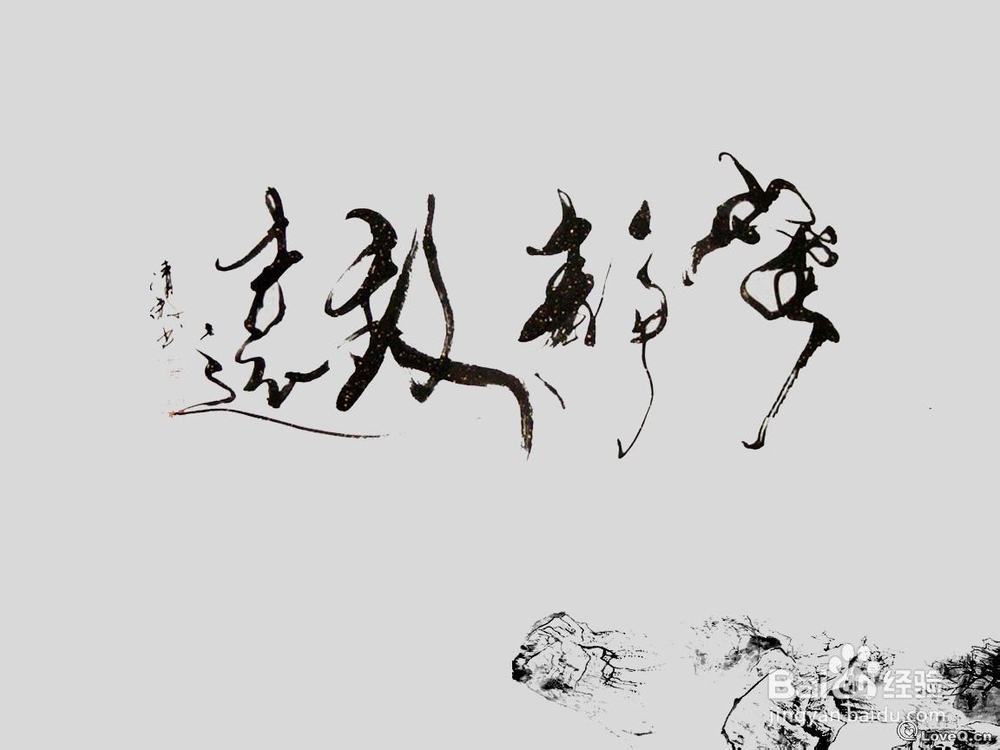 寧靜致遠
清風书
Bai 经验
jingyan.baidu.com
LoveQ.cn